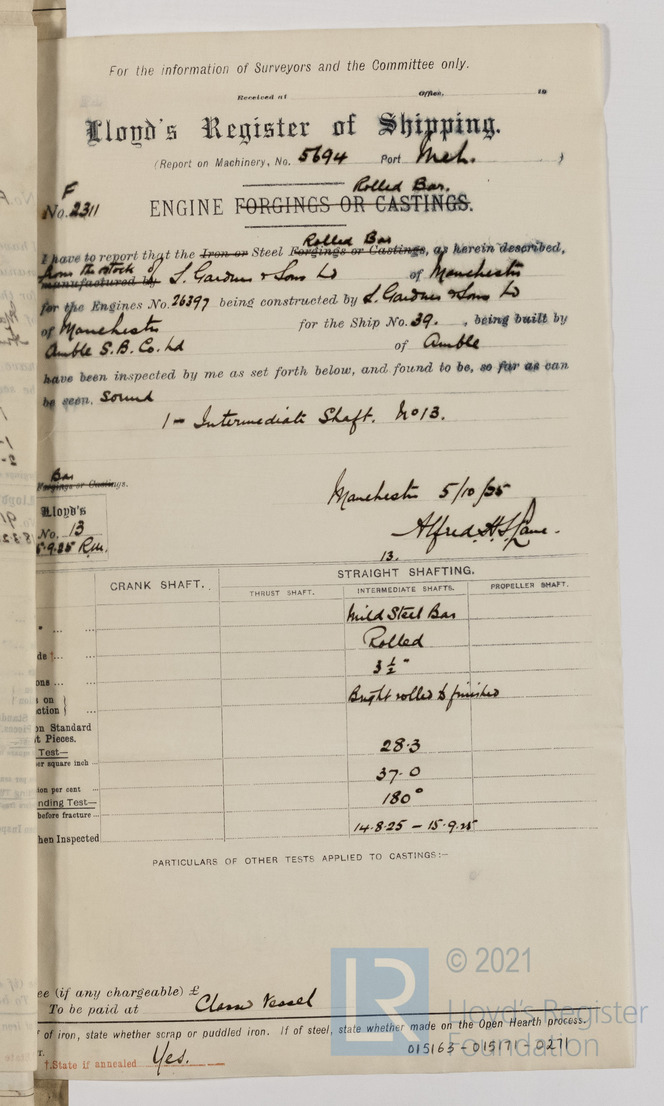 For the information of Surveyors and the Committee only.
Received at Office, 19
Lloyd's Register of Shipping.
(Report on Machinery, No. 5694 Port Mch. )
F
No. 2311
Rolled Bar.
ENGINE FORGINGS OR CASTINGS.
Rolled Bar
I have to report that the Iron or Steel Forgings or Castings, as herein described,
from the stock of
manufactured by L. Gardner & Sons Ld of Manchester
for the Engines No. 26397 being constructed by L. Gardner & Sons Ld
of Manchester for the Ship No. 39. , being built by
Amble S.B. Co. Ld of Amble
have been inspected by me as set forth below, and found to be, so far as can
be seen, Sound
1 – Intermediate Shaft. No 13.
Bar
Forgings or Castings.
Lloyd's
No. 13
5.9.25
Manchester 5/10/25
Alfred
13.
CRANK SHAFT.
STRAIGHT SHAFTING.
THRUST SHAFT.
INTERMEDIATE SHAFTS.
PROPELLER SHAFT.
Mild Steel Bar
" ... ...
Rolled
ds †... ...
3½"
ons ... ...
Bright rolled & finished
s on
ction
...
on Standard
t Pieces.
Test—
28.3
er square inch ...
37.0
ion per cent ...
nding Test—
180°
before fracture ...
14.8.25 – 15.9.25
hen Inspected
PARTICULARS OF OTHER TESTS APPLIED TO CASTINGS:—
ee (if any chargeable) £
To be paid at Class Vessel
of iron, state whether scrap or puddled iron. If of steel, state whether made on the Open Hearth process.
r.
†.State if annealed Yes.
015163-015171-0271
LR
© 2021
Lloyd's Register
Foundation